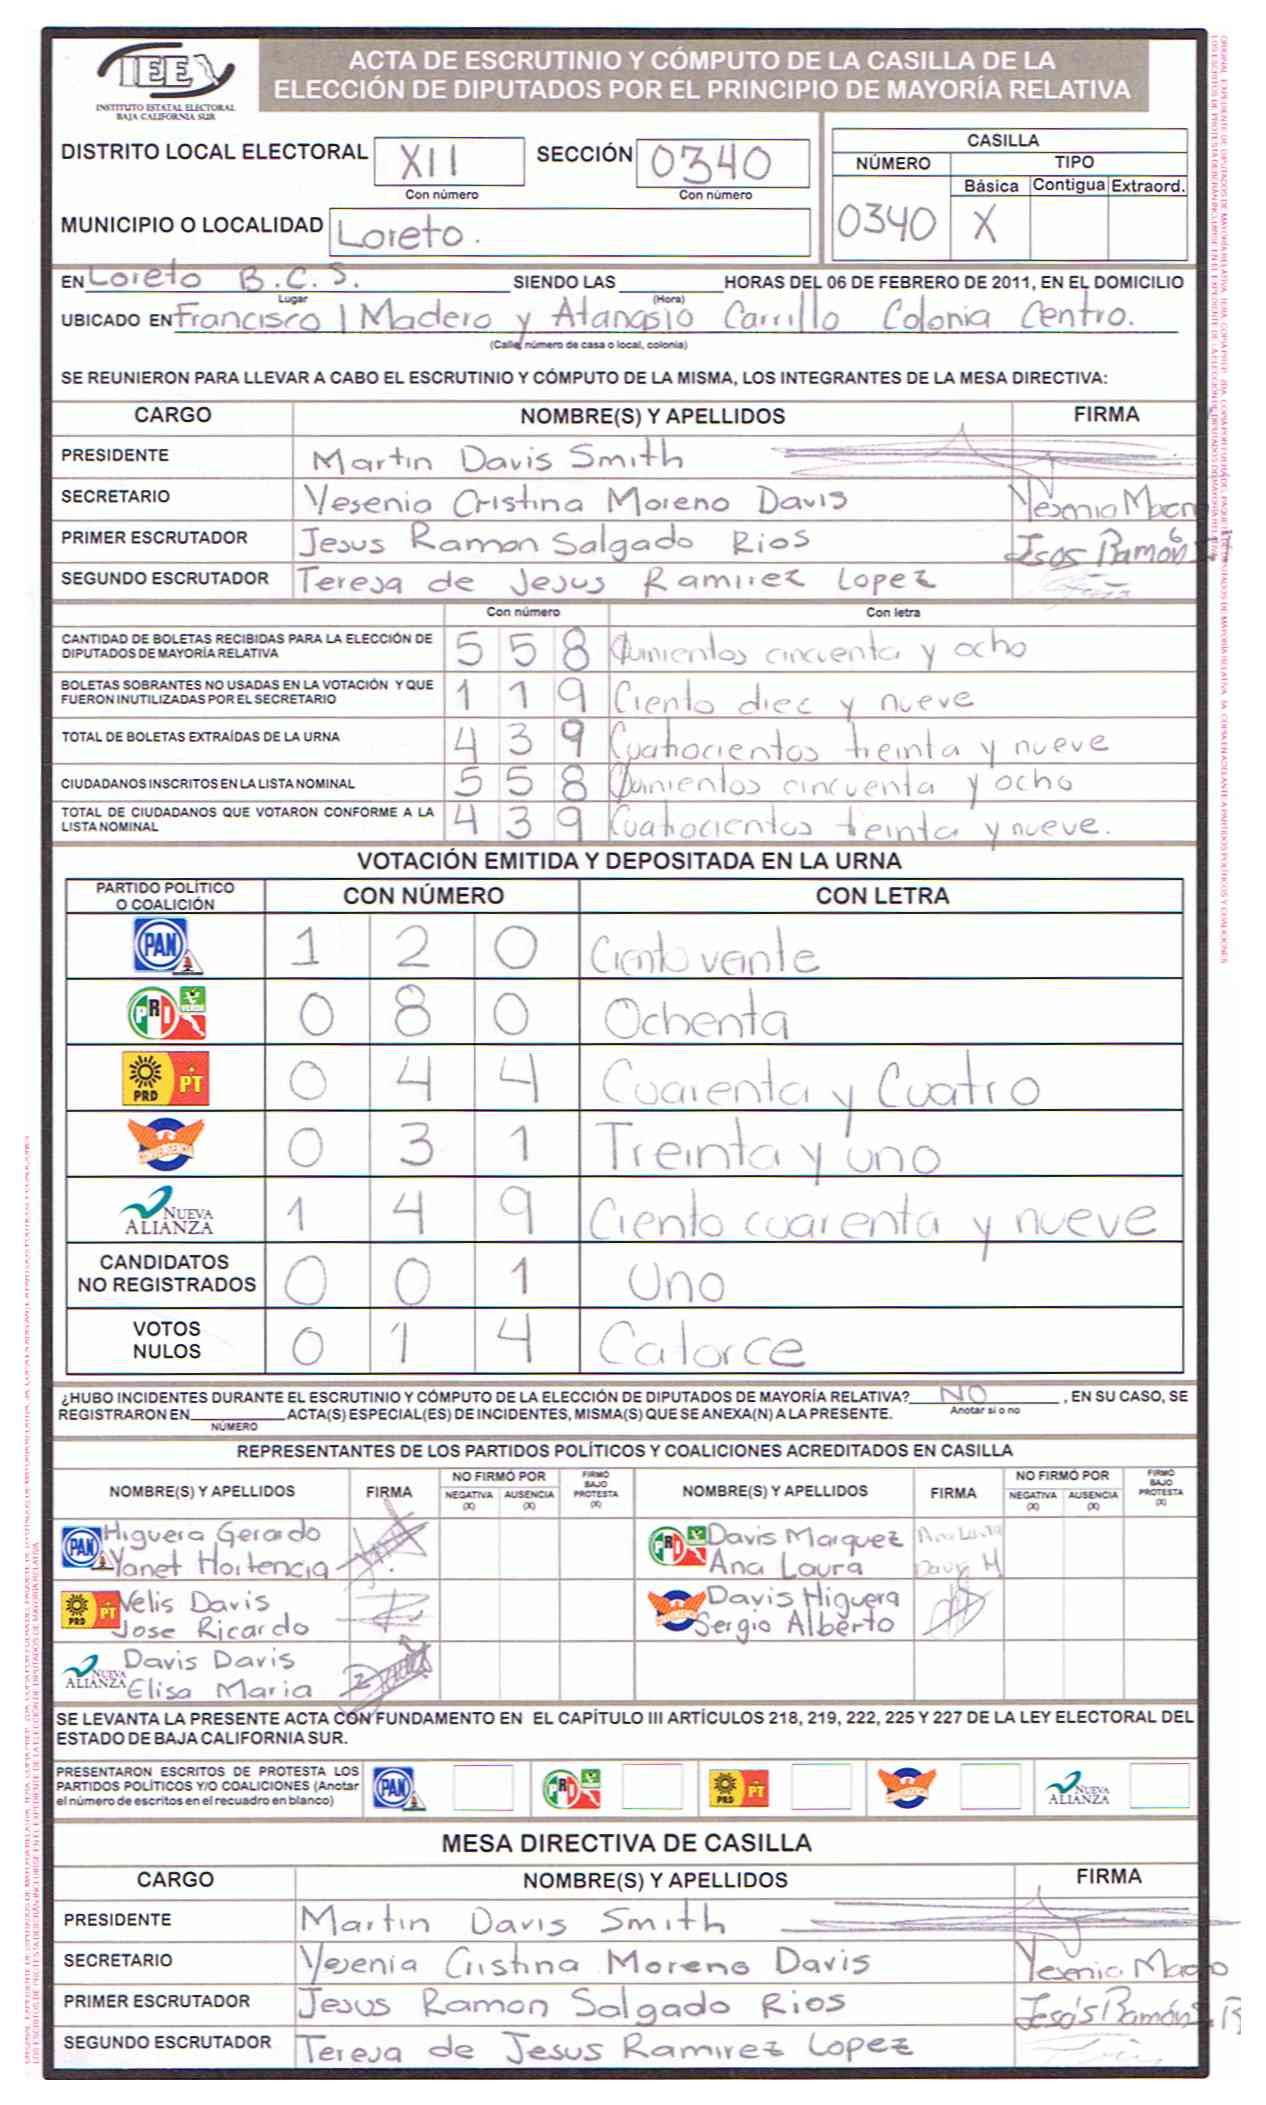 IEE
INSTITUTO ESTATAL ELECTORAL
BAJA CALIFORNIA SUR
ACTA DE ESCRUTINIO Y CÓMPUTO DE LA CASILLA DE LA
ELECCIÓN DE DIPUTADOS POR EL PRINCIPIO DE MAYORÍA RELATIVA
DISTRITO LOCAL ELECTORAL XII SECCIÓN 0340
Con número Con número
MUNICIPIO O LOCALIDAD Loreto.
CASILLA
NÚMERO TIPO
Básica Contigua Extraord.
0340 X
EN Loreto B.C.S. SIENDO LAS HORAS DEL 06 DE FEBRERO DE 2011, EN EL DOMICILIO
Lugar (Hora)
UBICADO EN Francisco I Madero y Atanasio Carrillo Colonia Centro.
(Calle, número de casa o local, colonia)
SE REUNIERON PARA LLEVAR A CABO EL ESCRUTINIO Y CÓMPUTO DE LA MISMA, LOS INTEGRANTES DE LA MESA DIRECTIVA:
CARGO NOMBRE(S) Y APELLIDOS FIRMA
PRESIDENTE Martin Davis Smith
SECRETARIO Yesenia Cristina Moreno Davis Yesenia
PRIMER ESCRUTADOR Jesus Ramon Salgado Rios Ramón
SEGUNDO ESCRUTADOR Teresa de Jesus Ramirez Lopez
Con número Con letra
CANTIDAD DE BOLETAS RECIBIDAS PARA LA ELECCIÓN DE
DIPUTADOS DE MAYORÍA RELATIVA 5 5 8 Quinientos cincuenta y ocho
BOLETAS SOBRANTES NO USADAS EN LA VOTACIÓN Y QUE
FUERON INUTILIZADAS POR EL SECRETARIO 1 1 9 Ciento diec y nueve
TOTAL DE BOLETAS EXTRAÍDAS DE LA URNA 4 3 9 Cuatrocientos treinta y nueve
CIUDADANOS INSCRITOS EN LA LISTA NOMINAL 5 5 8 Quinientos cincuenta y ocho
TOTAL DE CIUDADANOS QUE VOTARON CONFORME A LA
LISTA NOMINAL 4 3 9 Cuatrocientos treinta y nueve.
VOTACIÓN EMITIDA Y DEPOSITADA EN LA URNA
PARTIDO POLÍTICO
O COALICIÓN CON NÚMERO CON LETRA
PAN 1 2 0 Ciento veinte
PRI VERDE 0 8 0 Ochenta
PRD PT 0 4 4 Cuarenta y Cuatro
CONVERGENCIA 0 3 1 Treinta y uno
NUEVA ALIANZA 1 4 9 Ciento cuarenta y nueve
CANDIDATOS
NO REGISTRADOS 0 0 1 Uno
VOTOS
NULOS 0 1 4 Catorce
¿HUBO INCIDENTES DURANTE EL ESCRUTINIO Y CÓMPUTO DE LA ELECCIÓN DE DIPUTADOS DE MAYORÍA RELATIVA? NO , EN SU CASO, SE
Anotar si o no
REGISTRARON EN ACTA(S) ESPECIAL(ES) DE INCIDENTES, MISMA(S) QUE SE ANEXA(N) A LA PRESENTE.
NÚMERO
REPRESENTANTES DE LOS PARTIDOS POLÍTICOS Y COALICIONES ACREDITADOS EN CASILLA
NOMBRE(S) Y APELLIDOS FIRMA NO FIRMÓ POR NEGATIVA (X) AUSENCIA (X) FIRMÓ BAJO PROTESTA (X) NOMBRE(S) Y APELLIDOS FIRMA NO FIRMÓ POR NEGATIVA (X) AUSENCIA (X) FIRMÓ BAJO PROTESTA (X)
PAN Higuera Gerardo PRI Davis Marquez Ana Laura
Yanet Hortencia Ana Laura Davis M
PRD PT Velis Davis CONVERGENCIA Davis Higuera
Jose Ricardo Sergio Alberto
NUEVA ALIANZA Davis Davis
Elisa Maria
SE LEVANTA LA PRESENTE ACTA CON FUNDAMENTO EN EL CAPÍTULO III ARTÍCULOS 218, 219, 222, 225 Y 227 DE LA LEY ELECTORAL DEL
ESTADO DE BAJA CALIFORNIA SUR.
PRESENTARON ESCRITOS DE PROTESTA LOS
PARTIDOS POLÍTICOS Y/O COALICIONES (Anotar
el número de escritos en el recuadro en blanco)
PAN PRI PRD PT CONVERGENCIA NUEVA ALIANZA
MESA DIRECTIVA DE CASILLA
CARGO NOMBRE(S) Y APELLIDOS FIRMA
PRESIDENTE Martin Davis Smith
SECRETARIO Yesenia Cristina Moreno Davis Yesenia
PRIMER ESCRUTADOR Jesus Ramon Salgado Rios Jesús Ramón S. R
SEGUNDO ESCRUTADOR Teresa de Jesus Ramirez Lopez